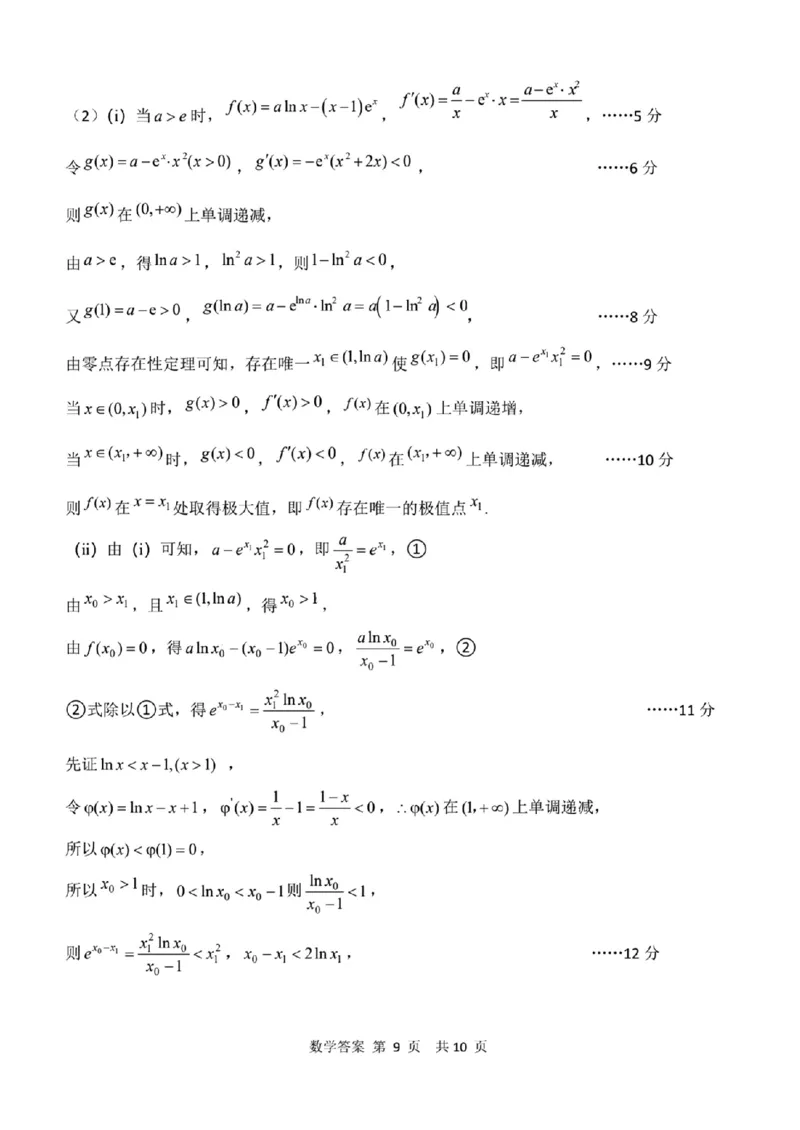 （2）（i）当a＞e时，f(x)=alnx-(x-1)e^x，f′(x)=a/x-e^x·x=(a-e^x·x^2)/x，……5分
令g(x)=a-e^x·x^2(x>0)，g′(x)=-e^x(x^2+2x)<0，……6分
则g(x)在(0,+∞)上单调递减，
由a>e，得lna>1，ln^2a>1，则1-ln^2a<0，
又g(1)=a-e>0，g(lna)=a-e^{lna}·ln^2a=a(1-ln^2a)<0，……8分
由零点存在性定理可知，存在唯一x_1∈(1,lna)使g(x_1)=0，即a-e^{x_1}x_1^2=0，……9分
当x∈(0,x_1)时，g(x)>0，f′(x)>0，f(x)在(0,x_1)上单调递增，
当x∈(x_1,+∞)时，g(x)<0，f′(x)<0，f(x)在(x_1,+∞)上单调递减，……10分
则f(x)在x=x_1处取得极大值，即f(x)存在唯一的极值点x_1.
（ii）由（i）可知，a-e^{x_1}x_1^2=0，即a/x_1^2=e^{x_1}，①
由x_0>x_1，且x_1∈(1,lna)，得x_0>1，
由f(x_0)=0，得alnx_0-(x_0-1)e^{x_0}=0，alnx_0/(x_0-1)=e^{x_0}，②
②式除以①式，得e^{x_0-x_1}=x_1^2lnx_0/(x_0-1)，……11分
先证lnx<x-1,(x>1)，
令φ(x)=lnx-x+1，φ'(x)=1/x-1=(1-x)/x<0，∴φ(x)在(1,+∞)上单调递减，
所以φ(x)<φ(1)=0，
所以x_0>1时，0<lnx_0<x_0-1则lnx_0/(x_0-1)<1，
则e^{x_0-x_1}=x_1^2lnx_0/(x_0-1)<x_1^2，x_0-x_1<2lnx_1，……12分
数学答案 第 9 页 共 10 页